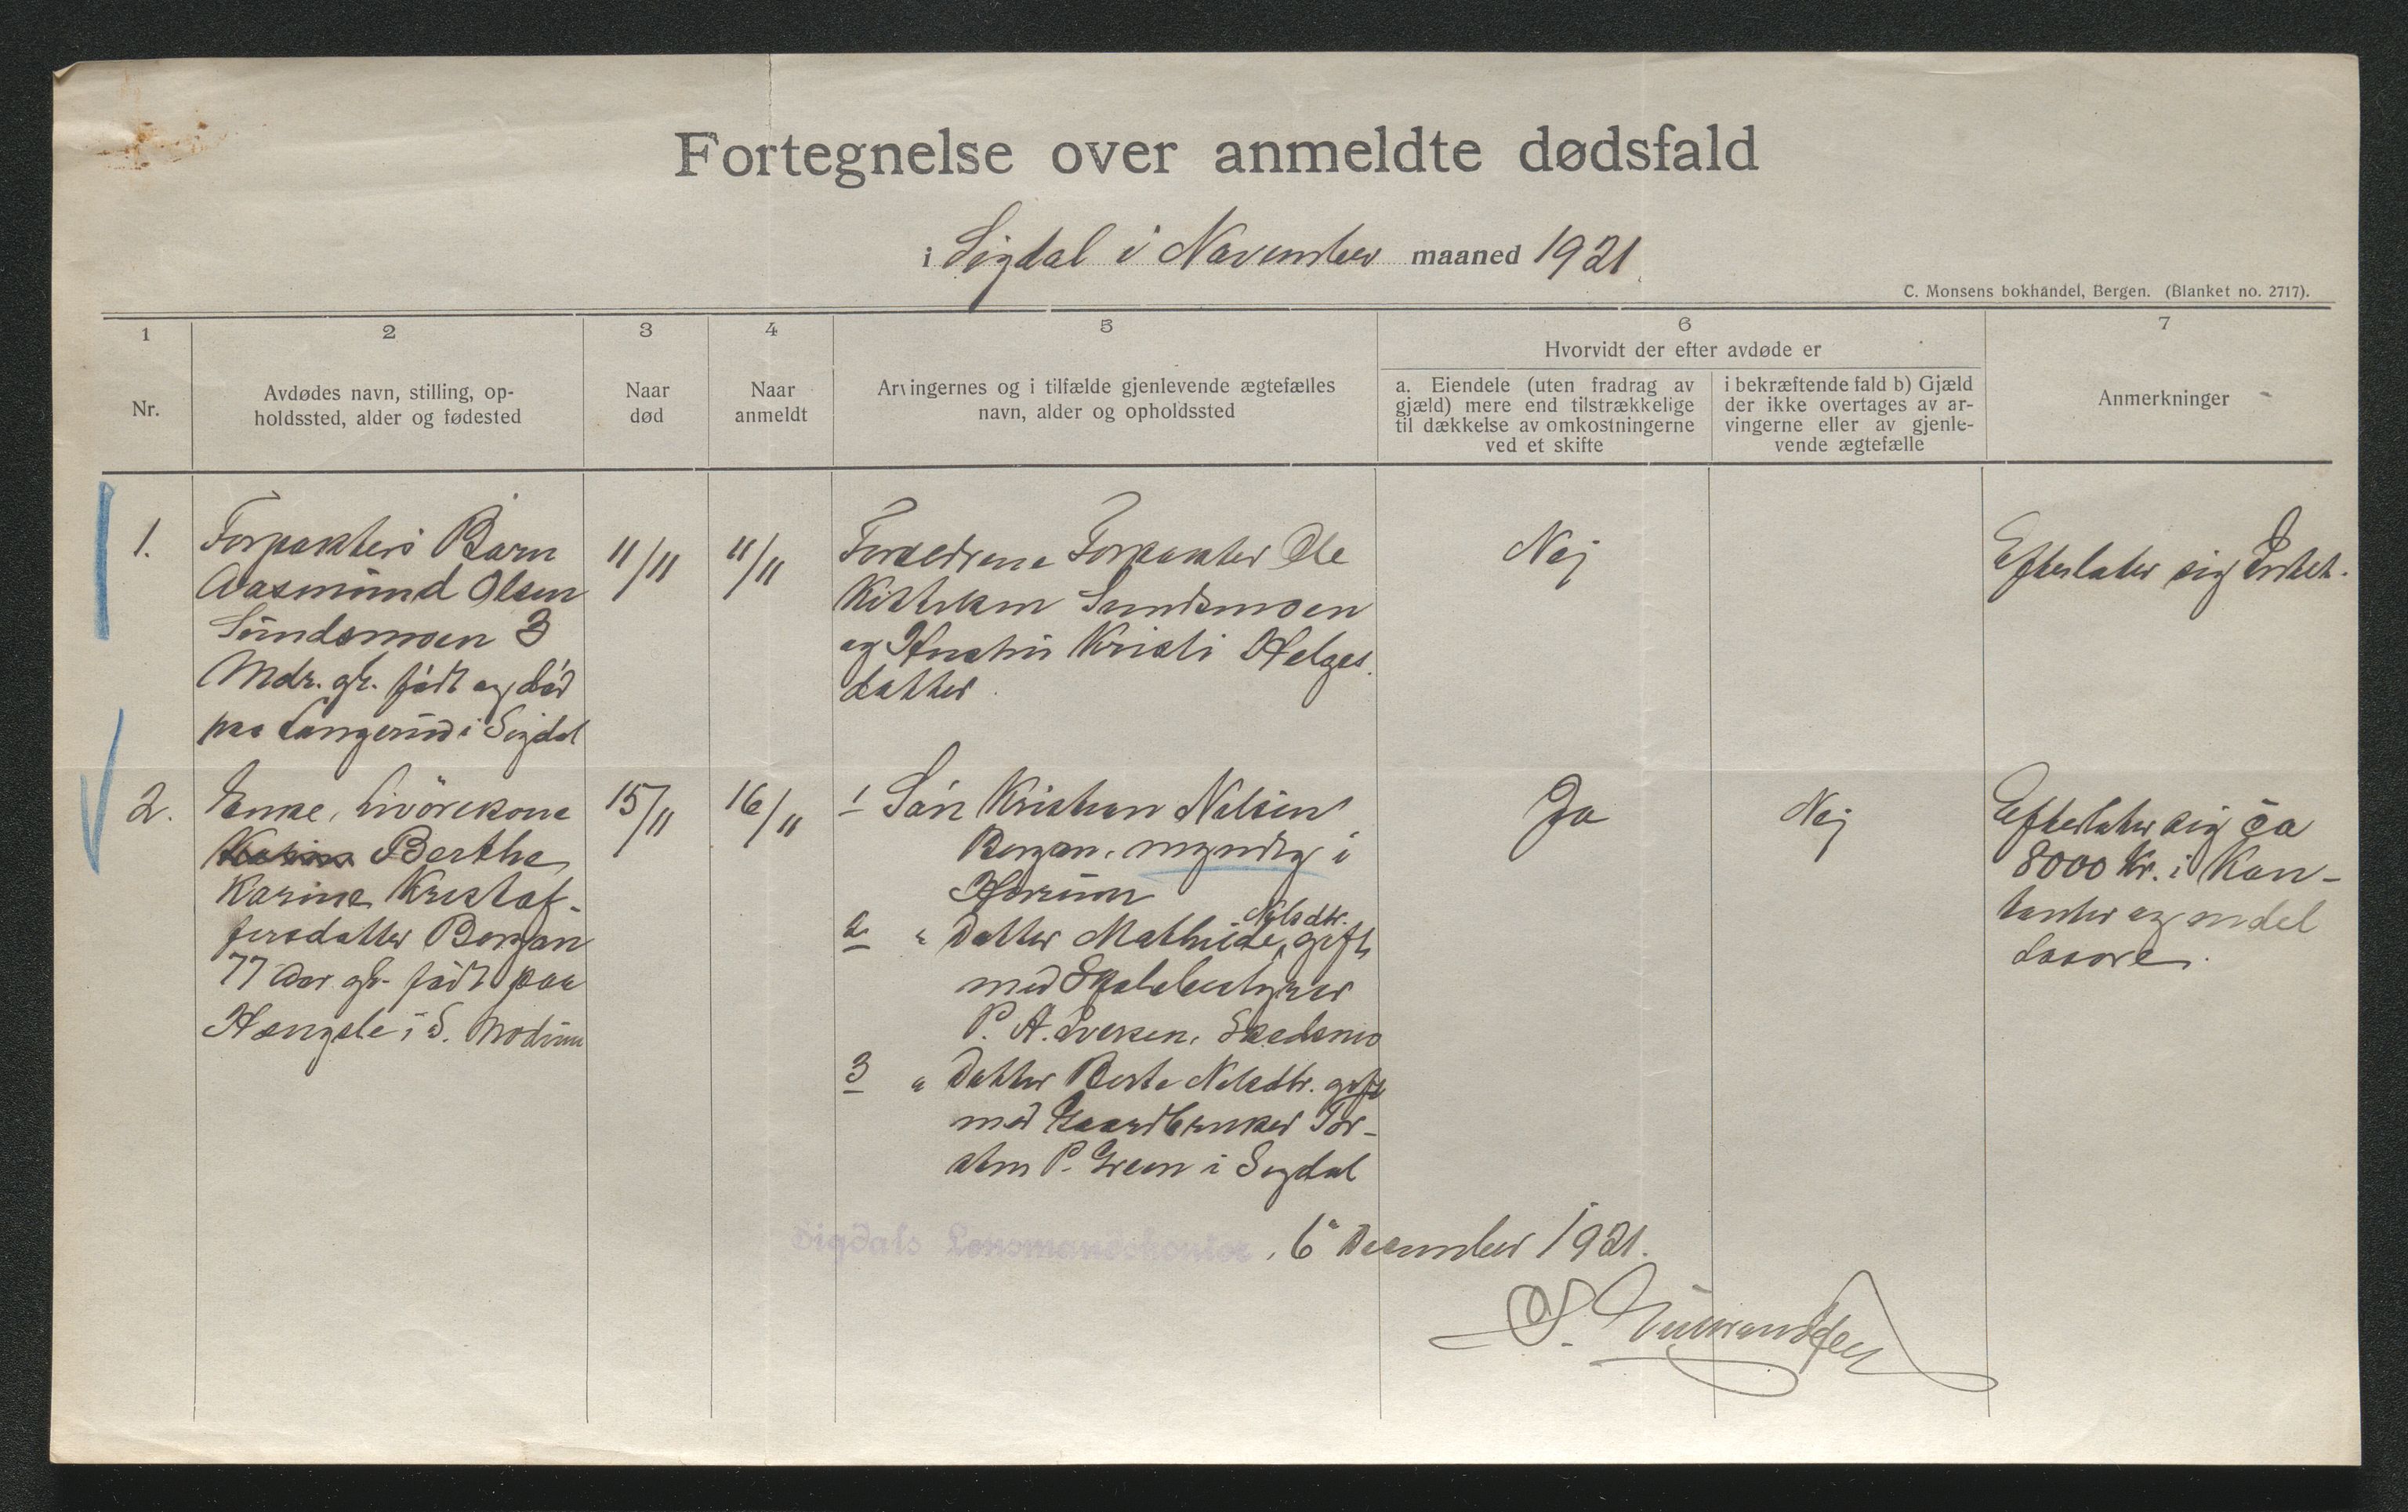 Fortegnelse over anmeldte dødsfald
i Sigdal i November maaned 1921
C. Monsens bokhandel, Bergen. (Blanket no. 2717).
1
Nr.
2
Avdødes navn, stilling, op-
holdssted, alder og fødested
3
Naar
død
4
Naar
anmeldt
5
Arvingernes og i tilfælde gjenlevende ægtefælles
navn, alder og opholdssted
6
Hvorvidt der efter avdøde er
a. Eiendele (uten fradrag av
gjæld) mere end tilstrækkelige
til dækkelse av omkostningerne
ved et skifte
i bekræftende fald b) Gjæld
der ikke overtages av ar-
vingerne eller av gjenle-
vende ægtefælle
7
Anmerkninger
1.
Forpakters Barn
Aasmund Olsen
Sundsmoen 3
Mdr. gl. født og død
paa Langerud i Sigdal
11/11
11/11
Forældrene Forpakter Ole
Kittilsen Sundsmoen
og Hustru Kristi Helges
datter
Nej
Efterlater sig Intet.
2.
Enke, Livørekone
Karine Berthe
Karine Kristof-
fersdatter Bergan
77 Aar gl. født paa
Hængsle i S. Modum
15/11
16/11
1 Søn Kristian Nilsen
Bergan, myndig i
2 " Datter Mathilde Nilsdtr., gift
med Skolebestyrer
P. A. Iversen, Skedsmo
3 " Datter Berte Nilsdtr. gift
med Gaardbruker Tor-
sten P. Green i Sigdal
Ja
Nej
Efterlater sig ca
8000 Kr. i Kon-
tanter og endel
Løsøre.
Sigdals Lensmandskontor, 6 December 1921.